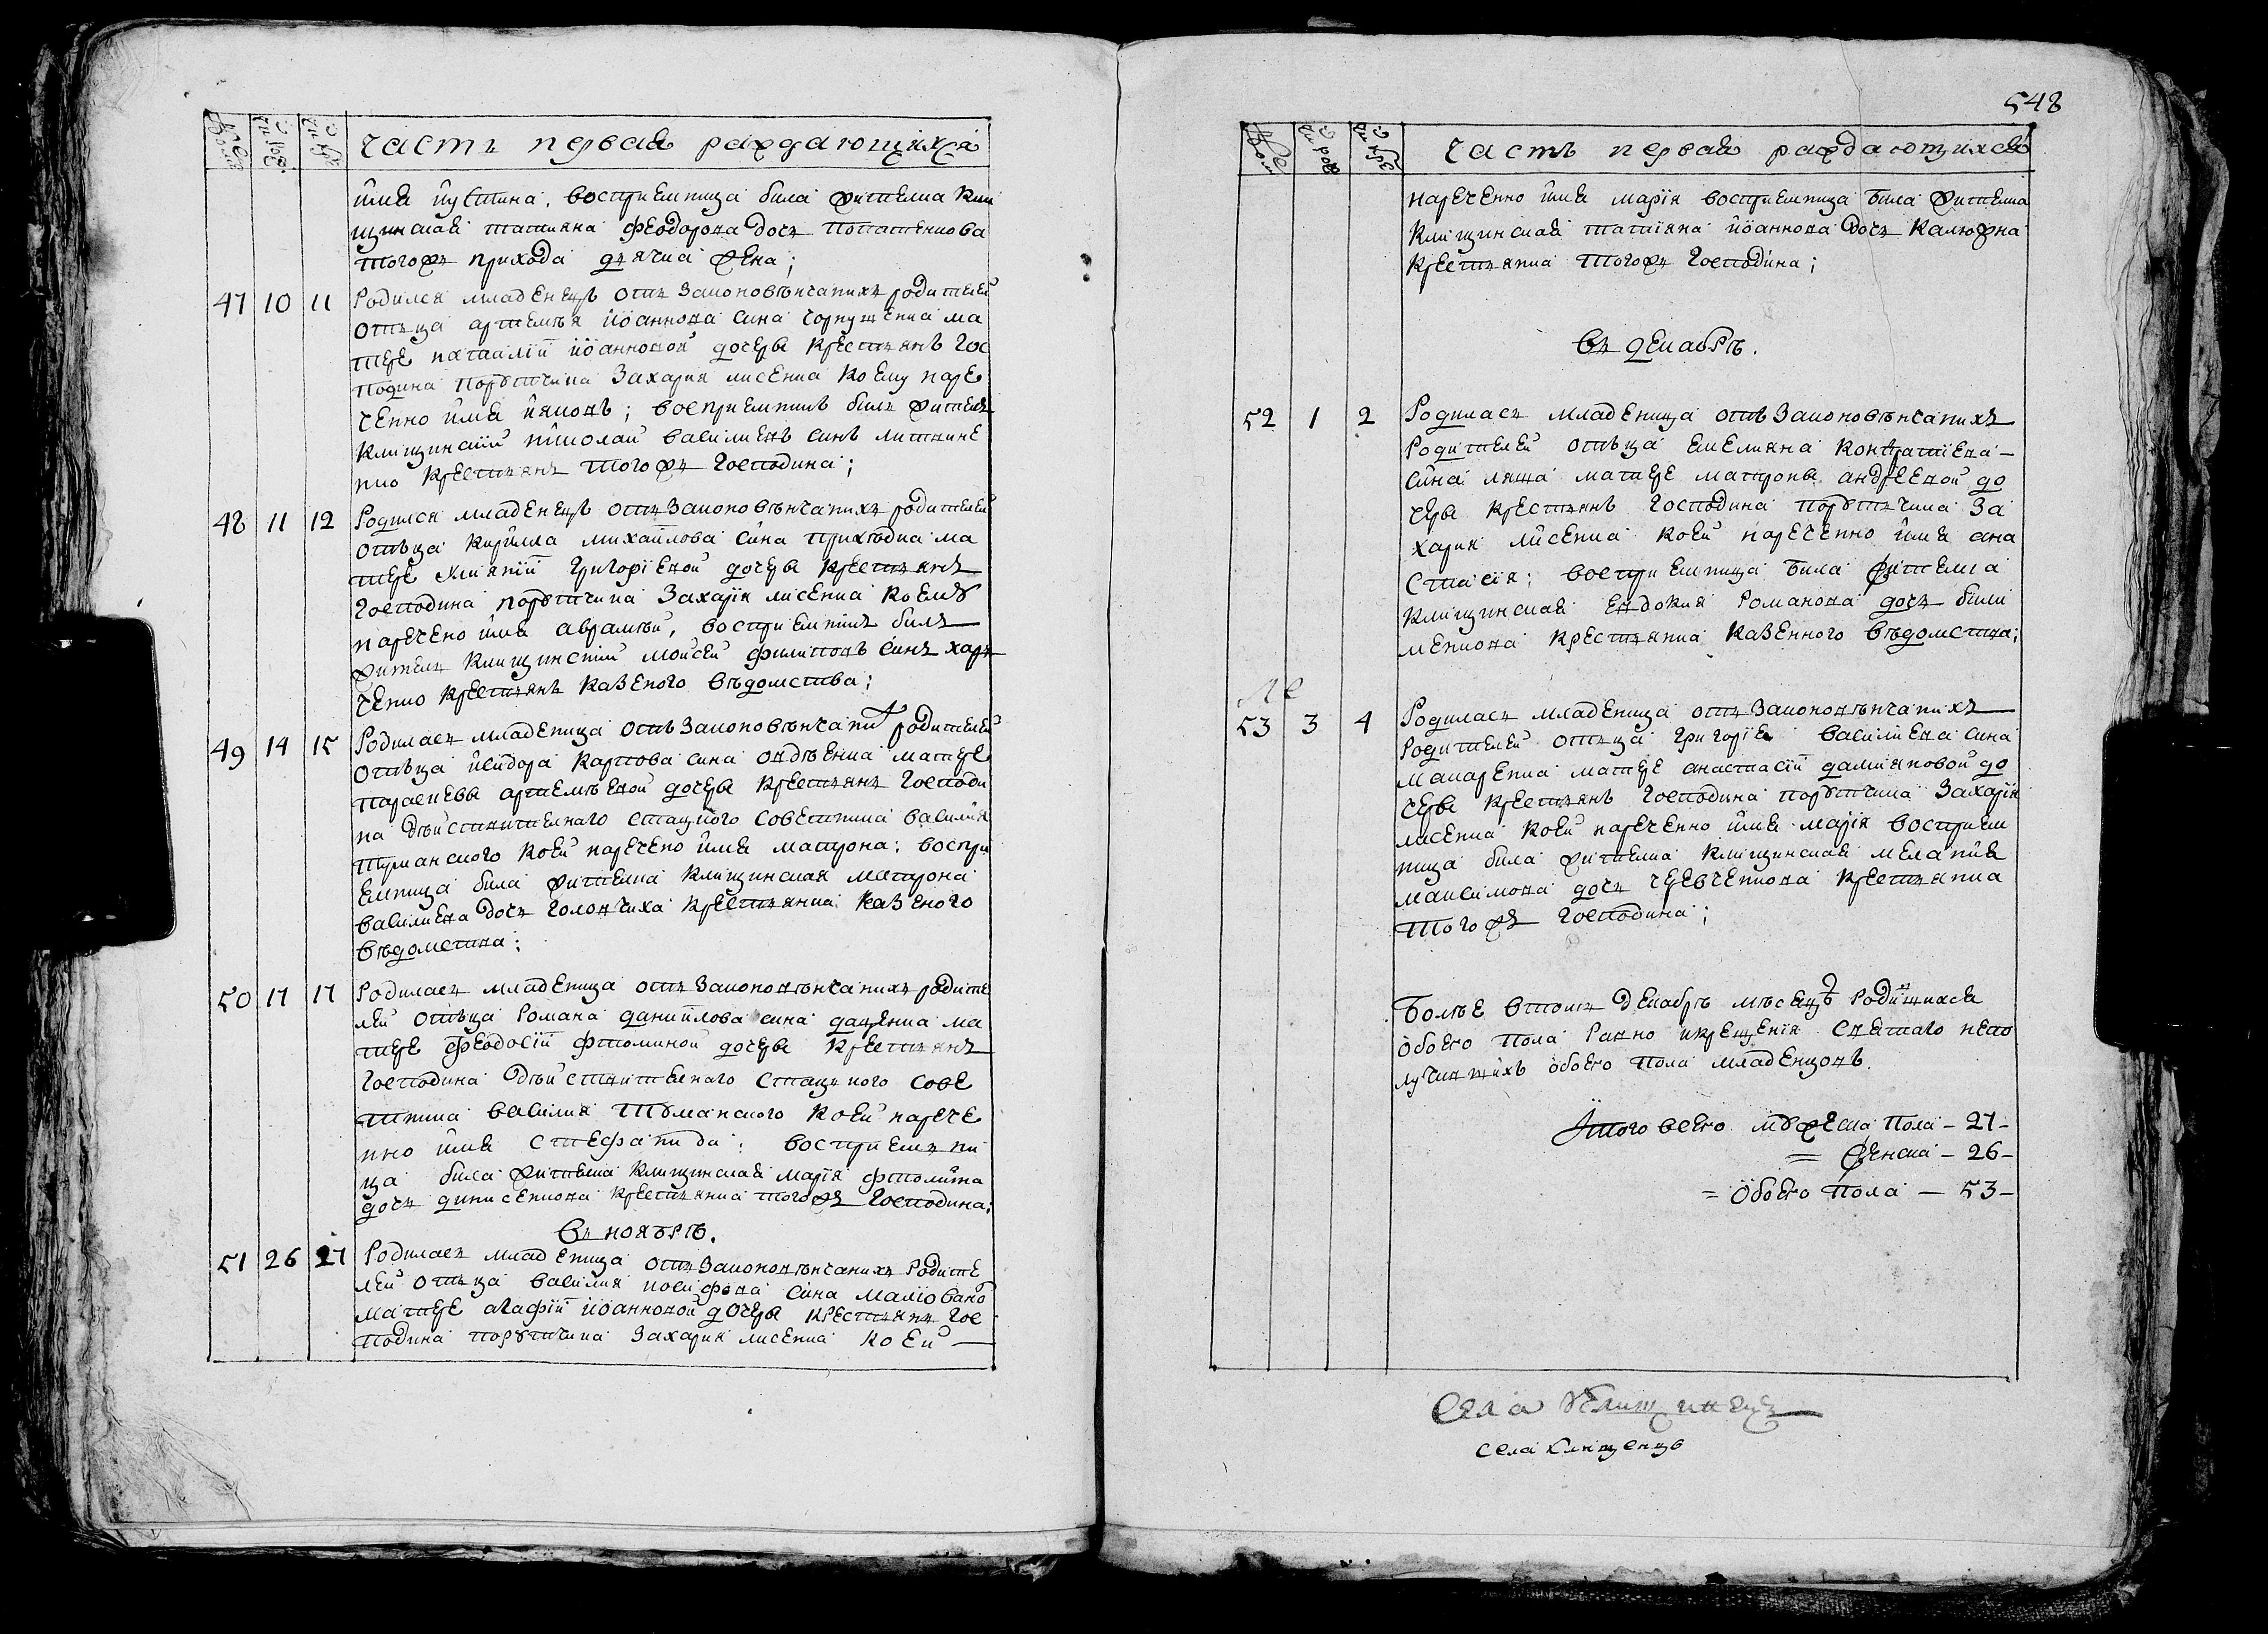 часть первая раждающихся
имя иустина, восприемница била жителка кли
щинская татияна феодорова дочъ потапенкова
тогожъ прихода дячка жена;
47 10 11 Родился младенецъ отъ законовѣнчанихъ родителей
отъца артемѣя иоаннова сина ма
тере наталіи иоанновой дочеры крестянъ гос
подина порутчика Захария лисенка коему наре
ченно имя ияковъ; восприемникъ билъ житель
клищинский николай василиевъ синъ литвине
нко крестянинъ тогожъ господина;
48 11 12 Родился младенецъ отъ законовѣнчанихъ родителей
отъца кирилла михаилова сина приходка ма
тере григориевой дочеры крестянъ
господина порутчика Захария лисенка коему
наречено имя аврамѣй, восприемникъ билъ
житель клищинский мойсей филиповъ синъ харъ
ченко крестянинъ казеного вѣдомства;
49 14 15 Родиласъ младеница отъ законовѣнчаних родителей
отъца исидора карпова сина матере
параскевы артемѣевой дочеры крестянъ господи
на дѣйствителнаго статцкого советника василия
туманского коей наречено имя матрона; воспри
емница била жителка клищинская матрона
василиева дочъ головчиха крестянка казеного
вѣдомства;
50 17 17 Родиласъ младеница отъ законовѣнчанихъ родите
лей отъца Романа даниилова сина даценка ма
тере феодосіи фтоминой дочеры крестянъ
господина дѣйствителнаго статцкого сове
тника василия туманского коей нарече
нно имя стефанида; восприемни
ца била жителка клищинская мария
дочъ динисенкова крестянка тогожъ господина;
въ ноябрѣ.
51 26 27 Родиласъ младеница отъ законовѣнчанихъ родите
лей отъца василия иосифова сина маліовано
матере агафіи иоанновой дочеры крестянъ гос
подина порутчика Захария лисенка коей
548
часть первая раждаютщихся
нареченно имя марія восприемница била жителка
клищинская татіяна иоаннова дочъ калюжна
крестянка тогожъ господина;
въ декабрѣ.
52 1 2 Родиласъ младеница отъ законовѣнчанихъ
родителей отъца емелияна кондратіева
сина ляша матере матроны андреевой до
черы крестянъ господина порутчика За
хария лисенка коей нареченно имя ана
стасія; восприемница била жителка
клищинская евдокия романова дочъ
крестянка казенного вѣдомства;
53 3 4 Родиласъ младеница отъ законовѣнчанихъ
родителей отъца григорія василиева сина
макаренка матере анастасіи даміяновой до
черы крестянъ господина порутчика Захарія
лисенка коей нареченно имя марія восприем
ница била жителка клищинская меланія
максимова дочъ чевченкова крестянка
тогожъ господина;
Болѣе втомъ декабрѣ мѣсецѣ родившихся
обоего пола равно икрещенія святаго непо
лучившихъ обоего пола младенцовъ.
итого всего мужеска пола - 27 -
= женска - 26 -
= обоего пола - 53 -
села клищинецъ
села клищенцъ